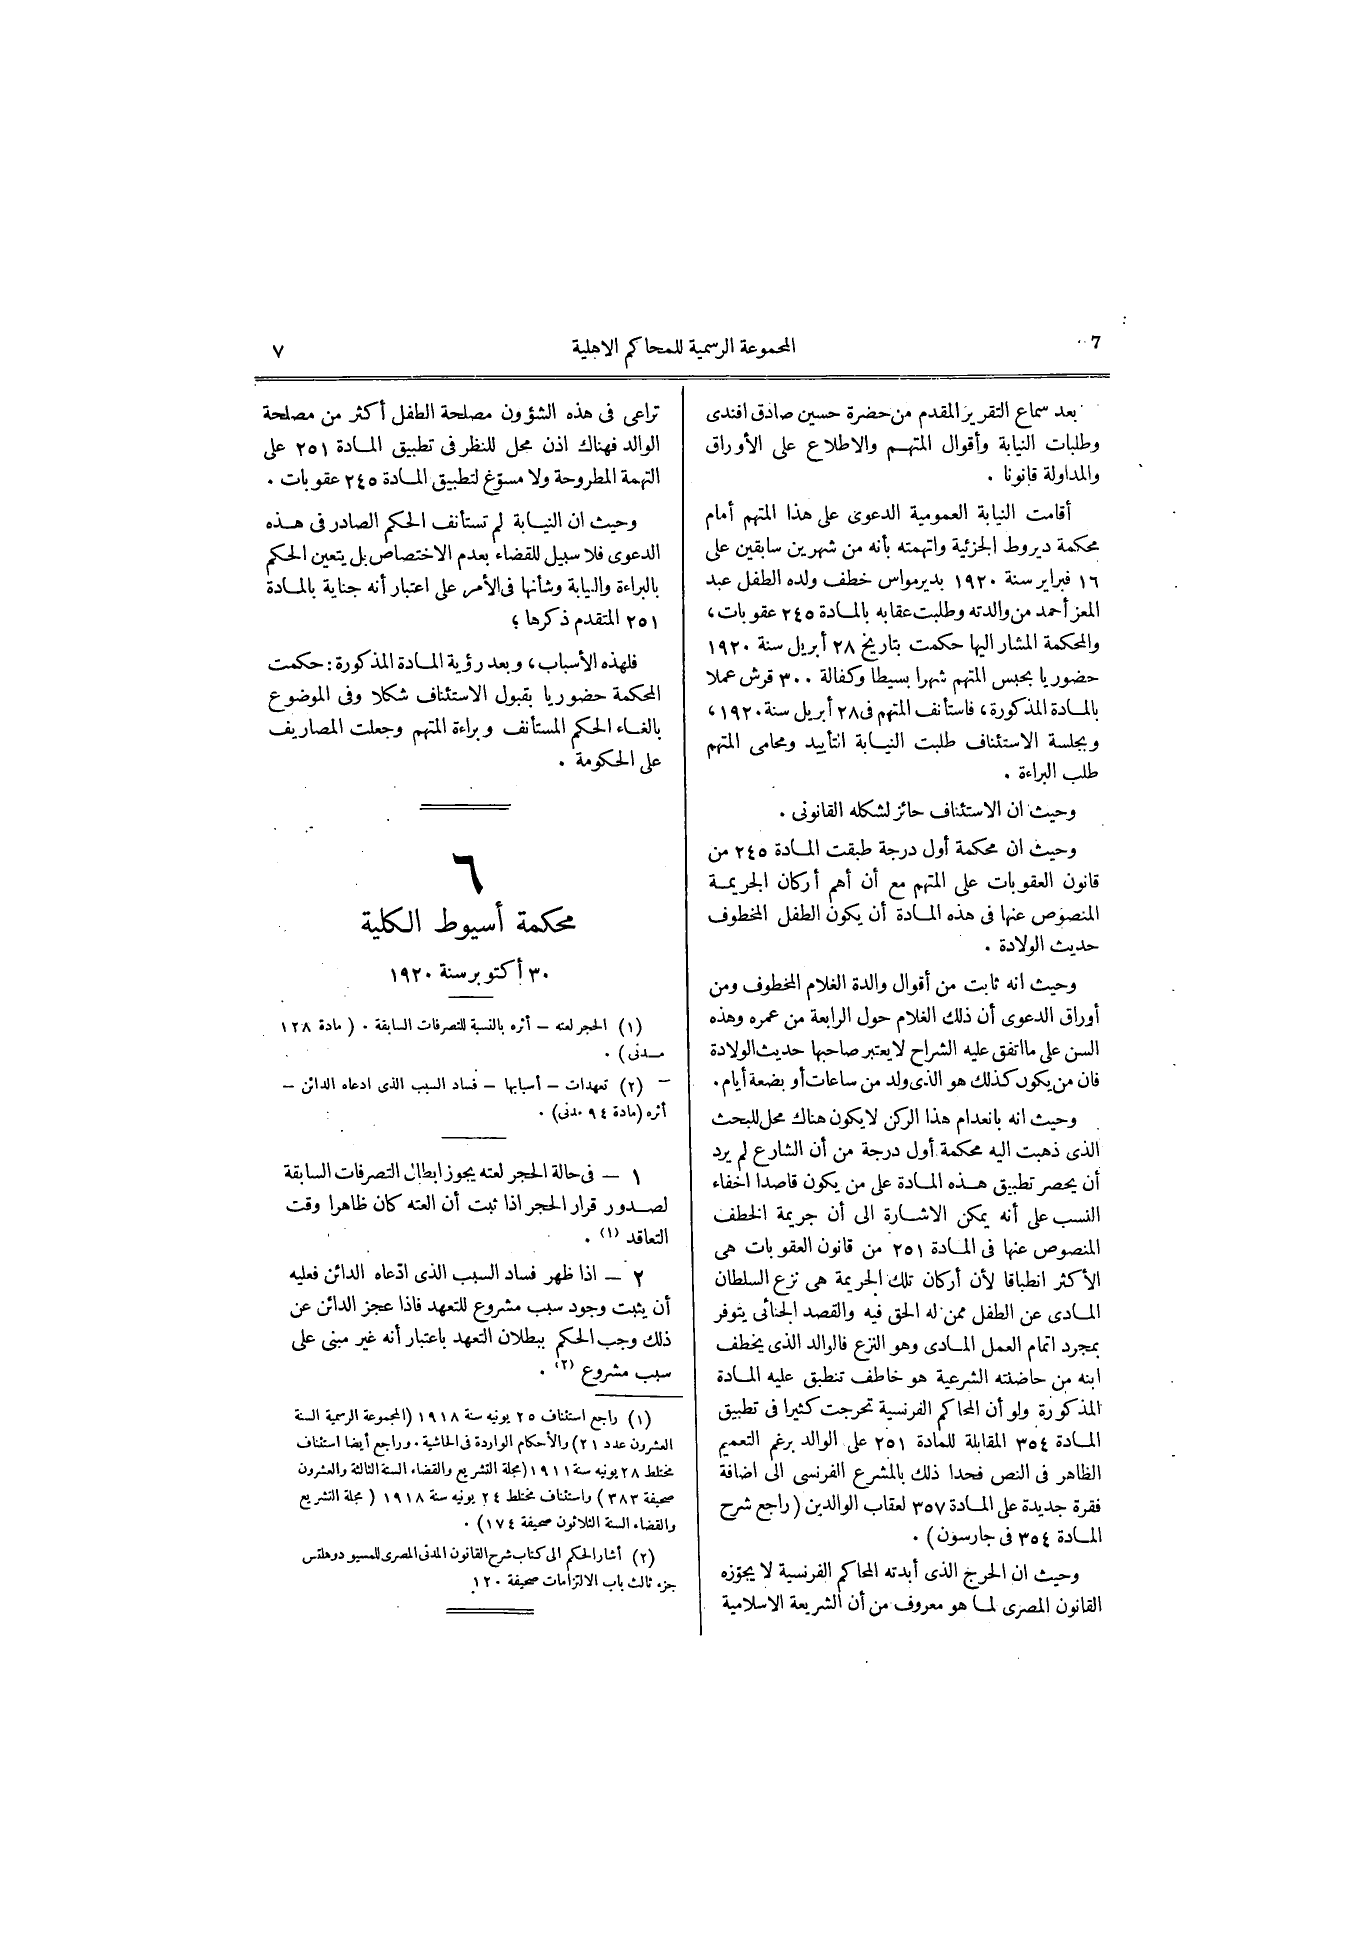 7
المجموعة الرسمية للمحاكم الاهلية
٧
بعد سماع التقرير المقدم من حضرة حسين صادق افندى
وطلبات النيابة وأقوال المتهم والاطلاع على الأوراق
والمداولة قانونا .
أقامت النيابة العمومية الدعوى على هذا المتهم أمام
محكمة ديروط الجزئية واتهمته بأنه من شهرين سابقين على
١٦ فبراير سنة ١٩٢٠ بديرمواس خطف ولده الطفل عبد
المعز أحمد من والدته وطلبت عقابه بالمادة ٢٤٥ عقوبات ،
والمحكمة المشار اليها حكمت بتاريخ ٢٨ أبريل سنة ١٩٢٠
حضوريا بحبس المتهم شهرا بسيطا وكفالة ٣٠٠ قرش عملا
بالمادة المذكورة ، فاستأنف المتهم فى ٢٨ أبريل سنة ١٩٢٠ ،
وبجلسة الاستئناف طلبت النيابة التأييد ومحامى المتهم
طلب البراءة .
وحيث ان الاستئناف حائز لشكله القانونى .
وحيث ان محكمة أول درجة طبقت المادة ٢٤٥ من
قانون العقوبات على المتهم مع أن أهم أركان الجريمة
المنصوص عنها فى هذه المادة أن يكون الطفل المخطوف
حديث الولادة .
وحيث انه ثابت من أقوال والدة الغلام المخطوف ومن
أوراق الدعوى أن ذلك الغلام حول الرابعة من عمره وهذه
السن على مااتفق عليه الشراح لايعتبر صاحبها حديث الولادة
فان من يكون كذلك هو الذى ولد من ساعات أو بضعة أيام .
وحيث انه بانعدام هذا الركن لايكون هناك محل للبحث
الذى ذهبت اليه محكمة أول درجة من أن الشارع لم يرد
أن يحصر تطبيق هذه المادة على من يكون قاصدا اخفاء
النسب على أنه يمكن الاشارة الى أن جريمة الخطف
المنصوص عنها فى المادة ٢٥١ من قانون العقوبات هى
الأكثر انطباقا لأن أركان تلك الجريمة هى نزع السلطان
المادى عن الطفل ممن له الحق فيه والقصد الجنائى يتوفر
بمجرد اتمام العمل المادى وهو النزع فالوالد الذى يخطف
ابنه من حاضنته الشرعية هو خاطف تنطبق عليه المادة
المذكورة ولو أن المحاكم الفرنسية تحرجت كثيرا فى تطبيق
المادة ٣٥٤ المقابلة للمادة ٢٥١ على الوالد برغم التعميم
الظاهر فى النص فحدا ذلك بالمشرع الفرنسى الى اضافة
فقرة جديدة على المادة ٣٥٧ لعقاب الوالدين ( راجع شرح
المادة ٣٥٤ فى جارسون ) .
وحيث ان الحرج الذى أبدته المحاكم الفرنسية لا يجوّزه
القانون المصرى لما هو معروف من أن الشريعة الاسلامية
تراعى فى هذه الشؤون مصلحة الطفل أكثر من مصلحة
الوالد فهناك اذن محل للنظر فى تطبيق المادة ٢٥١ على
التهمة المطروحة ولا مسوّغ لتطبيق المادة ٢٤٥ عقوبات .
وحيث ان النيابة لم تستأنف الحكم الصادر فى هذه
الدعوى فلا سبيل للقضاء بعدم الاختصاص بل يتعين الحكم
بالبراءة والنيابة وشأنها فى الأمر على اعتبار أنه جناية بالمادة
٢٥١ المتقدم ذكرها ؛
فلهذه الأسباب ، وبعد رؤية المادة المذكورة : حكمت
المحكمة حضوريا بقبول الاستئناف شكلا وفى الموضوع
بالغاء الحكم المستأنف وبراءة المتهم وجعلت المصاريف
على الحكومة .
٦
محكمة أسيوط الكلية
٣٠ أكتوبر سنة ١٩٢٠
(١) الحجر لعته – أثره بالنسبة للتصرفات السابقة . ( مادة ١٢٨
مدنى ) .
(٢) تعهدات – أسبابها – فساد السبب الذى ادعاه الدائن –
أثره (مادة ٩٤ مدنى) .
١ – فى حالة الحجر لعته يجوز ابطال التصرفات السابقة
لصدور قرار الحجر اذا ثبت أن العته كان ظاهرا وقت
التعاقد (١) .
٢ – اذا ظهر فساد السبب الذى ادّعاه الدائن فعليه
أن يثبت وجود سبب مشروع للتعهد فاذا عجز الدائن عن
ذلك وجب الحكم ببطلان التعهد باعتبار أنه غير مبنى على
سبب مشروع (٢) .
(١) راجع استئناف ٢٥ يونيه سنة ١٩١٨ (المجموعة الرسمية السنة
العشرون عدد ٢١) والأحكام الواردة فى الحاشية . وراجع أيضا استئناف
مختلط ٢٨ يونيه سنة ١٩١١ (مجلة التشريع والقضاء السنة الثالثة والعشرون
صحيفة ٣٨٣ ) واستئناف مختلط ٢٤ يونيه سنة ١٩١٨ ( مجلة التشريع
والقضاء السنة الثلاثون صحيفة ١٧٤) .
(٢) أشار الحكم الى كتاب شرح القانون المدنى المصرى للمسيو دوهلتس
جزء ثالث باب الالتزامات صحيفة ١٢٠